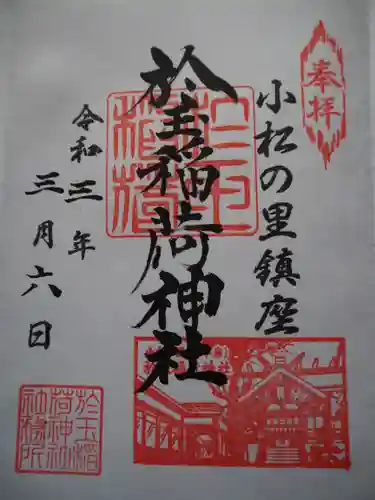 奉拝
小松の里鎮座
於玉稲荷神社
令和三年
三月六日
於玉稲
荷神社
社務所